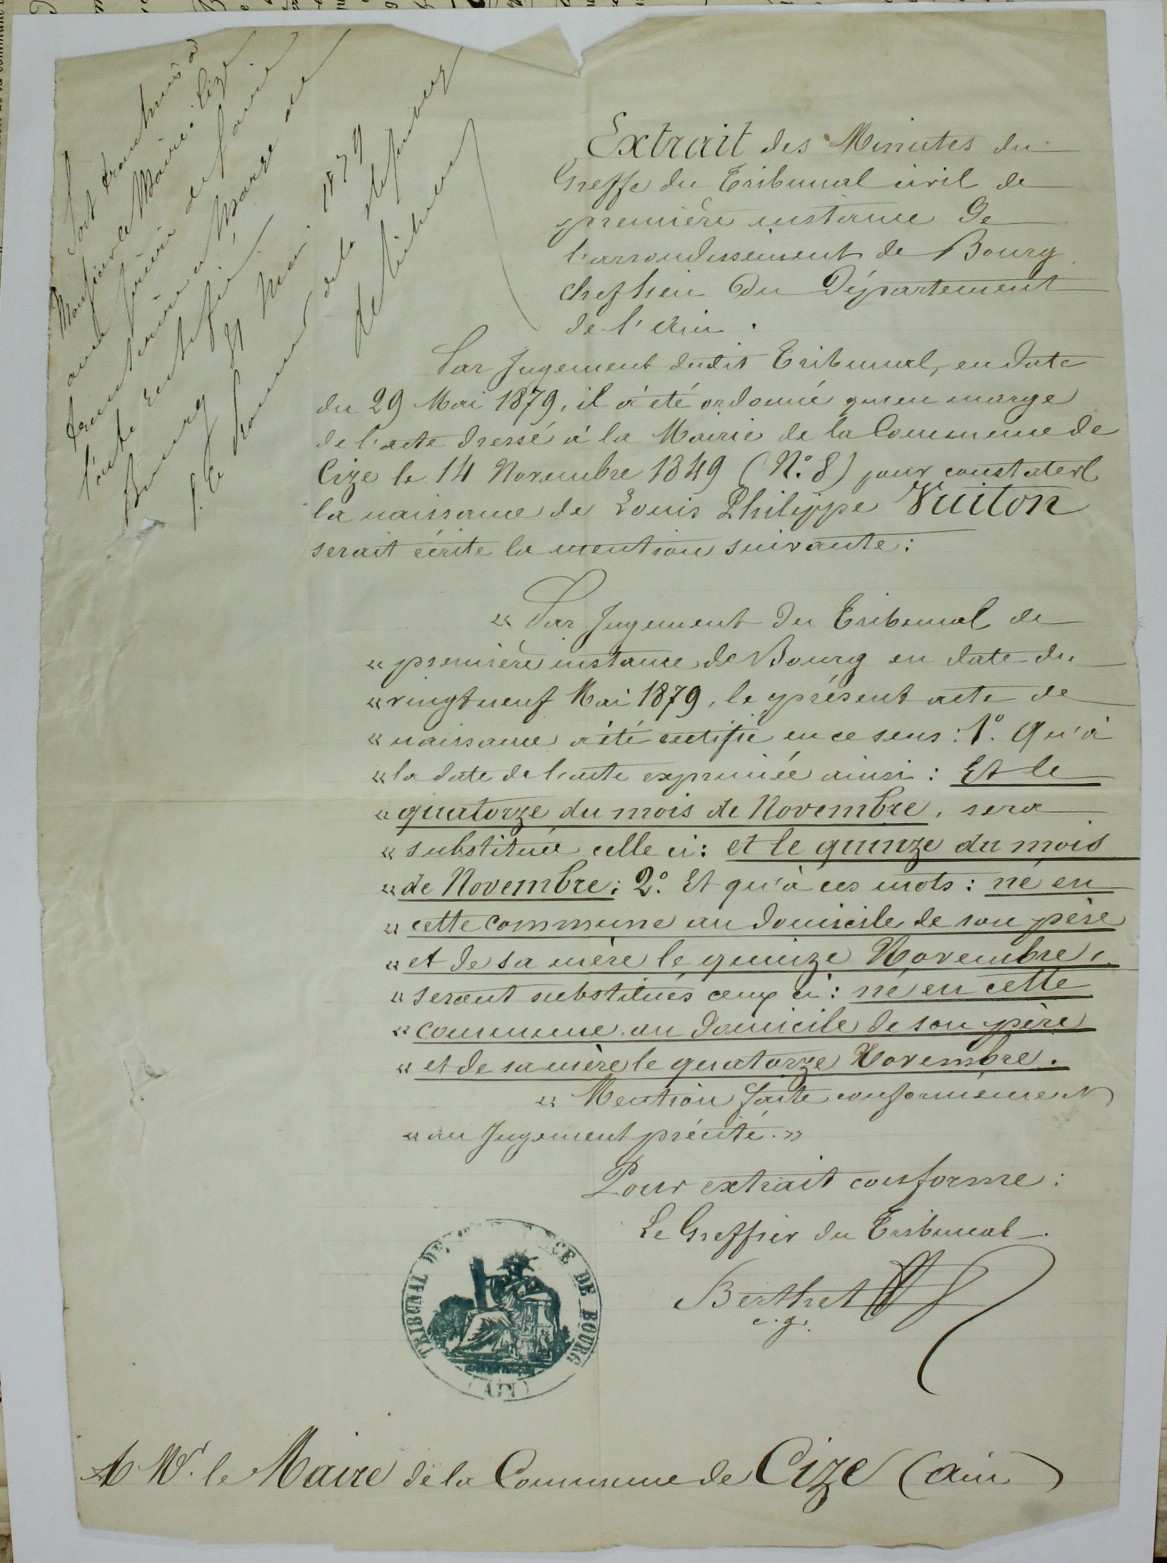 Soit transmis à
Monsieur le Maire de Cize
avec prière de faire
transcrire en marge de
l'acte rectifié
Bourg 31 Mai 1879
P. le Procureur de la République
Extrait des Minutes du
Greffe du Tribunal civil de
première instance de
l'arrondissement de Bourg
chef lieu du Département
de l'Ain.
Par Jugement dudit Tribunal, en date
du 29 Mai 1879, il a été ordonné qu'en marge
de l'acte dressé à la Mairie de la Commune de
Cize le 14 Novembre 1849 (N.° 8) pour constater
la naissance de Louis Philippe Vuiton
serait écrite la mention suivante:
« Par Jugement du Tribunal de
« première instance de Bourg en date du
« vingt neuf Mai 1879, le présent acte de
« naissance a été rectifié en ce sens: 1° Qu'à
« la date de l'acte exprimée ainsi: Et le
« quatorze du mois de Novembre, sera
« substituée celle ci: et le quinze du mois
« de Novembre; 2° Et qu'à ces mots: né en
« cette commune au domicile de son père
« et de sa mère le quinze Novembre,
« seront substitués ceux ci: né en cette
« commune au domicile de son père
« et de sa mère le quatorze Novembre.
« Mention faite conformément
« au Jugement précité. »
Pour extrait conforme:
Le Greffier du Tribunal.
Berthet
c. g.
TRIBUNAL DE CE DE BOURG
(AIN)
A Mr. le Maire de la Commune de Cize (Ain)